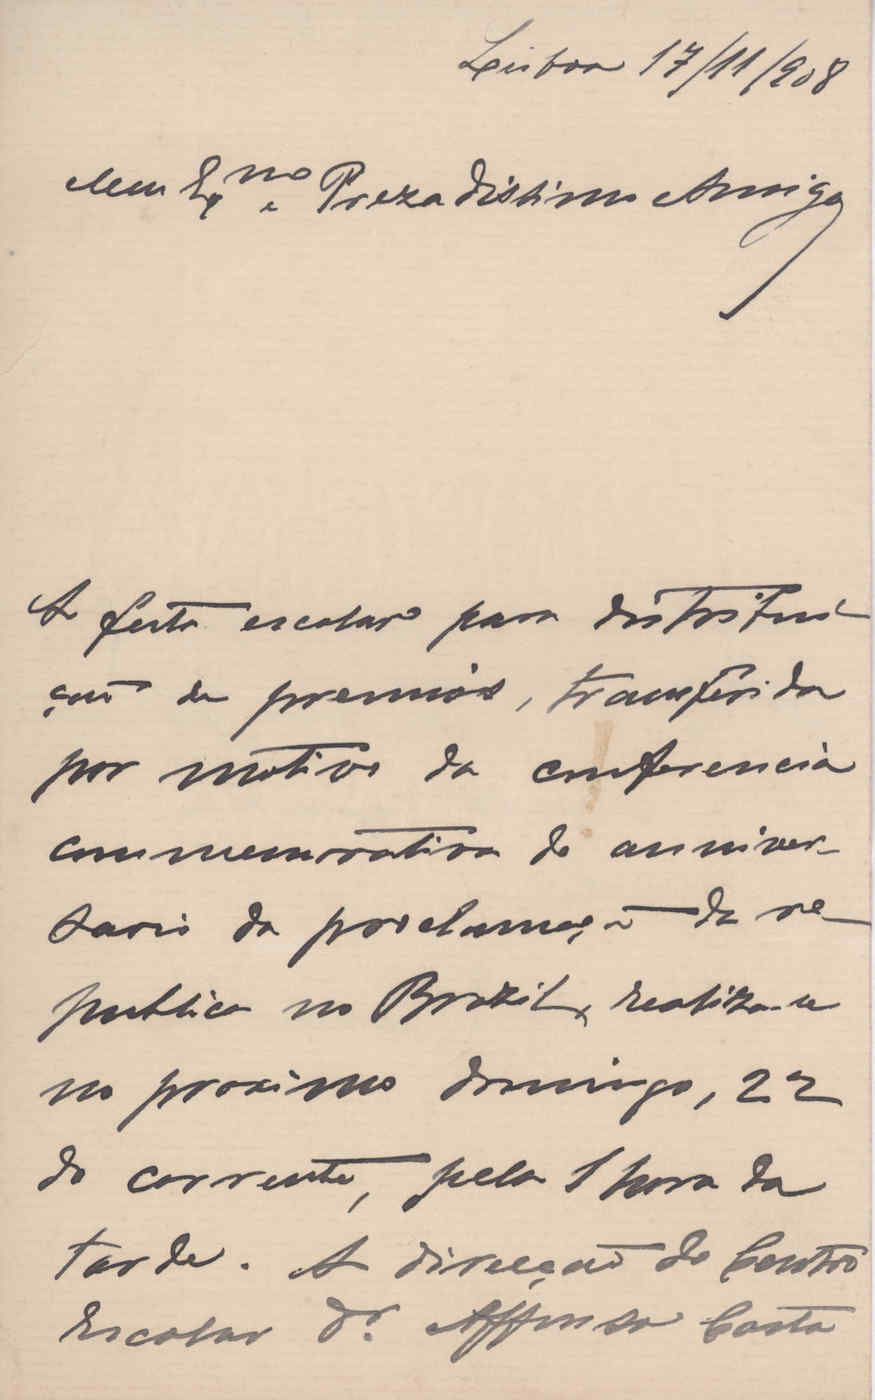 Lisboa 17/11/908
Meu Exmo e Prezadissimo Amigo
A festa escolar para distribui-
ção de premios, transferida
por motivo da conferencia
commemorativa do anniver-
sario da proclamação da re-
publica no Brazil, realiza-se
no proximo domingo, 22
do corrente, pela 1 hora da
tarde. A direcção do Centro
Escolar Dr. Affonso Costa